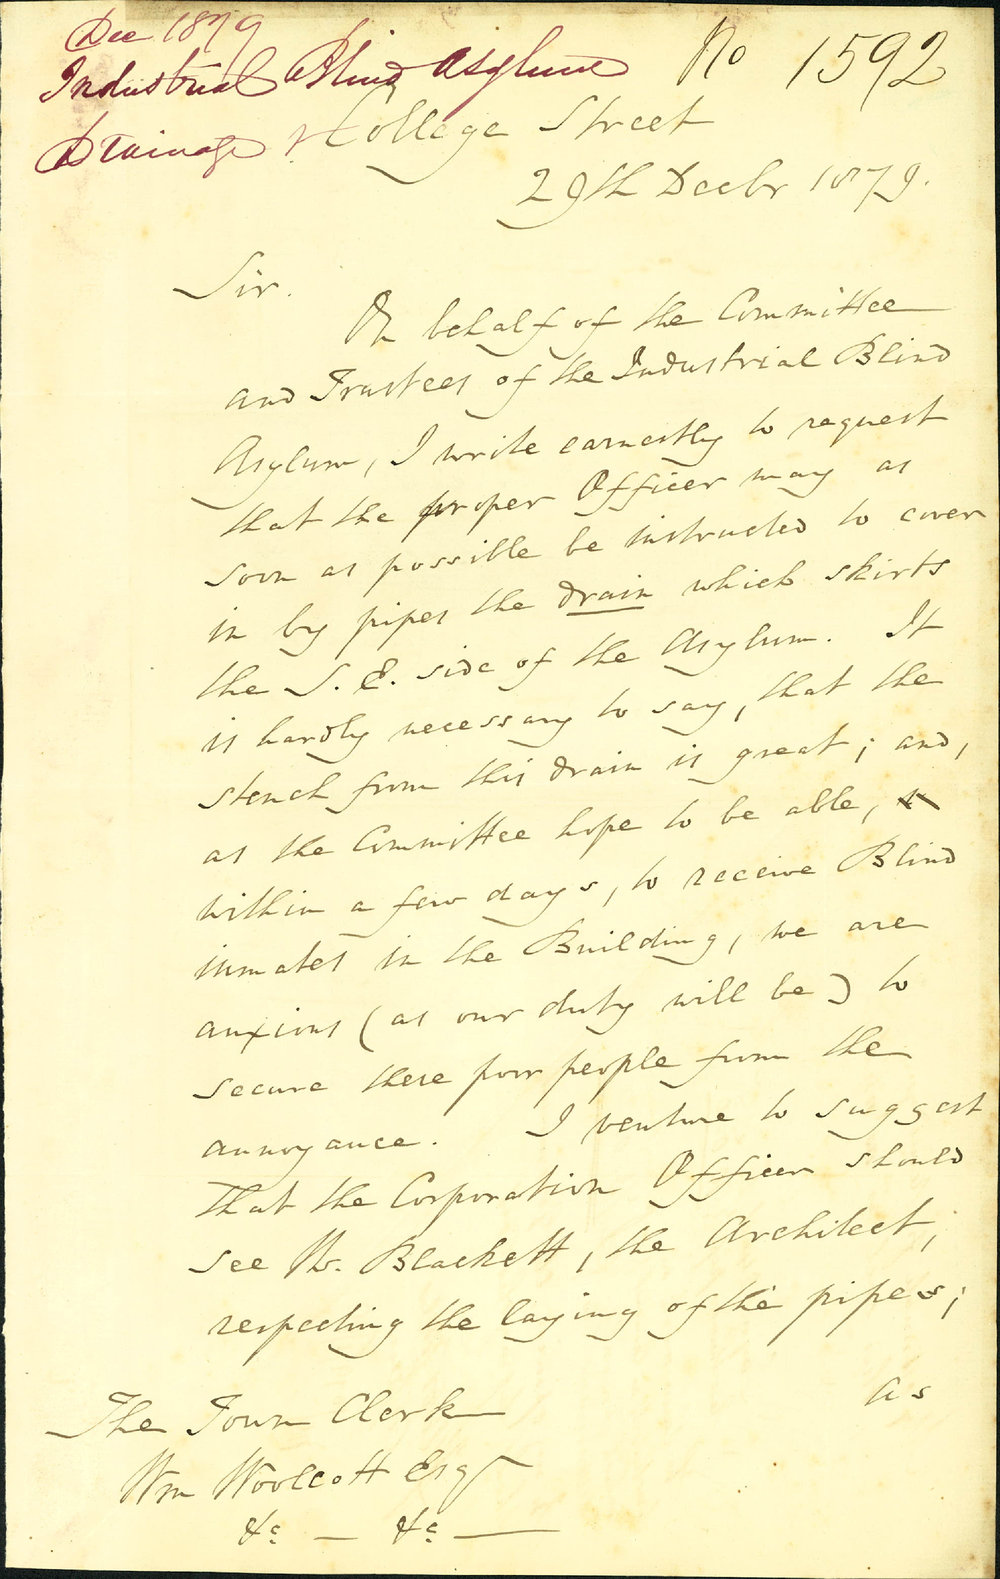 Dec 1879
Industrial Blind Asylum
Drainage
No 1592
College Street
29th Decbr 1879.
Sir.
On behalf of the Committee
and Trustees of the Industrial Blind
Asylum, I write earnestly to request
that the proper Officer may as
soon as possible be instructed to cover
in by pipes the drain which skirts
the S.E. side of the Asylum. It
is hardly necessary to say, that the
stench from this drain is great; and,
as the Committee hope to be able,
within a few days, to receive Blind
inmates in the Building, we are
anxious (as our duty will be) to
secure these poor people from the
annoyance. I venture to suggest
that the Corporation Officer should
see Mr. Blackett, the Architect,
respecting the laying of the pipes;
as
The Town Clerk
Wm Woolcott Esq
&c — &c —